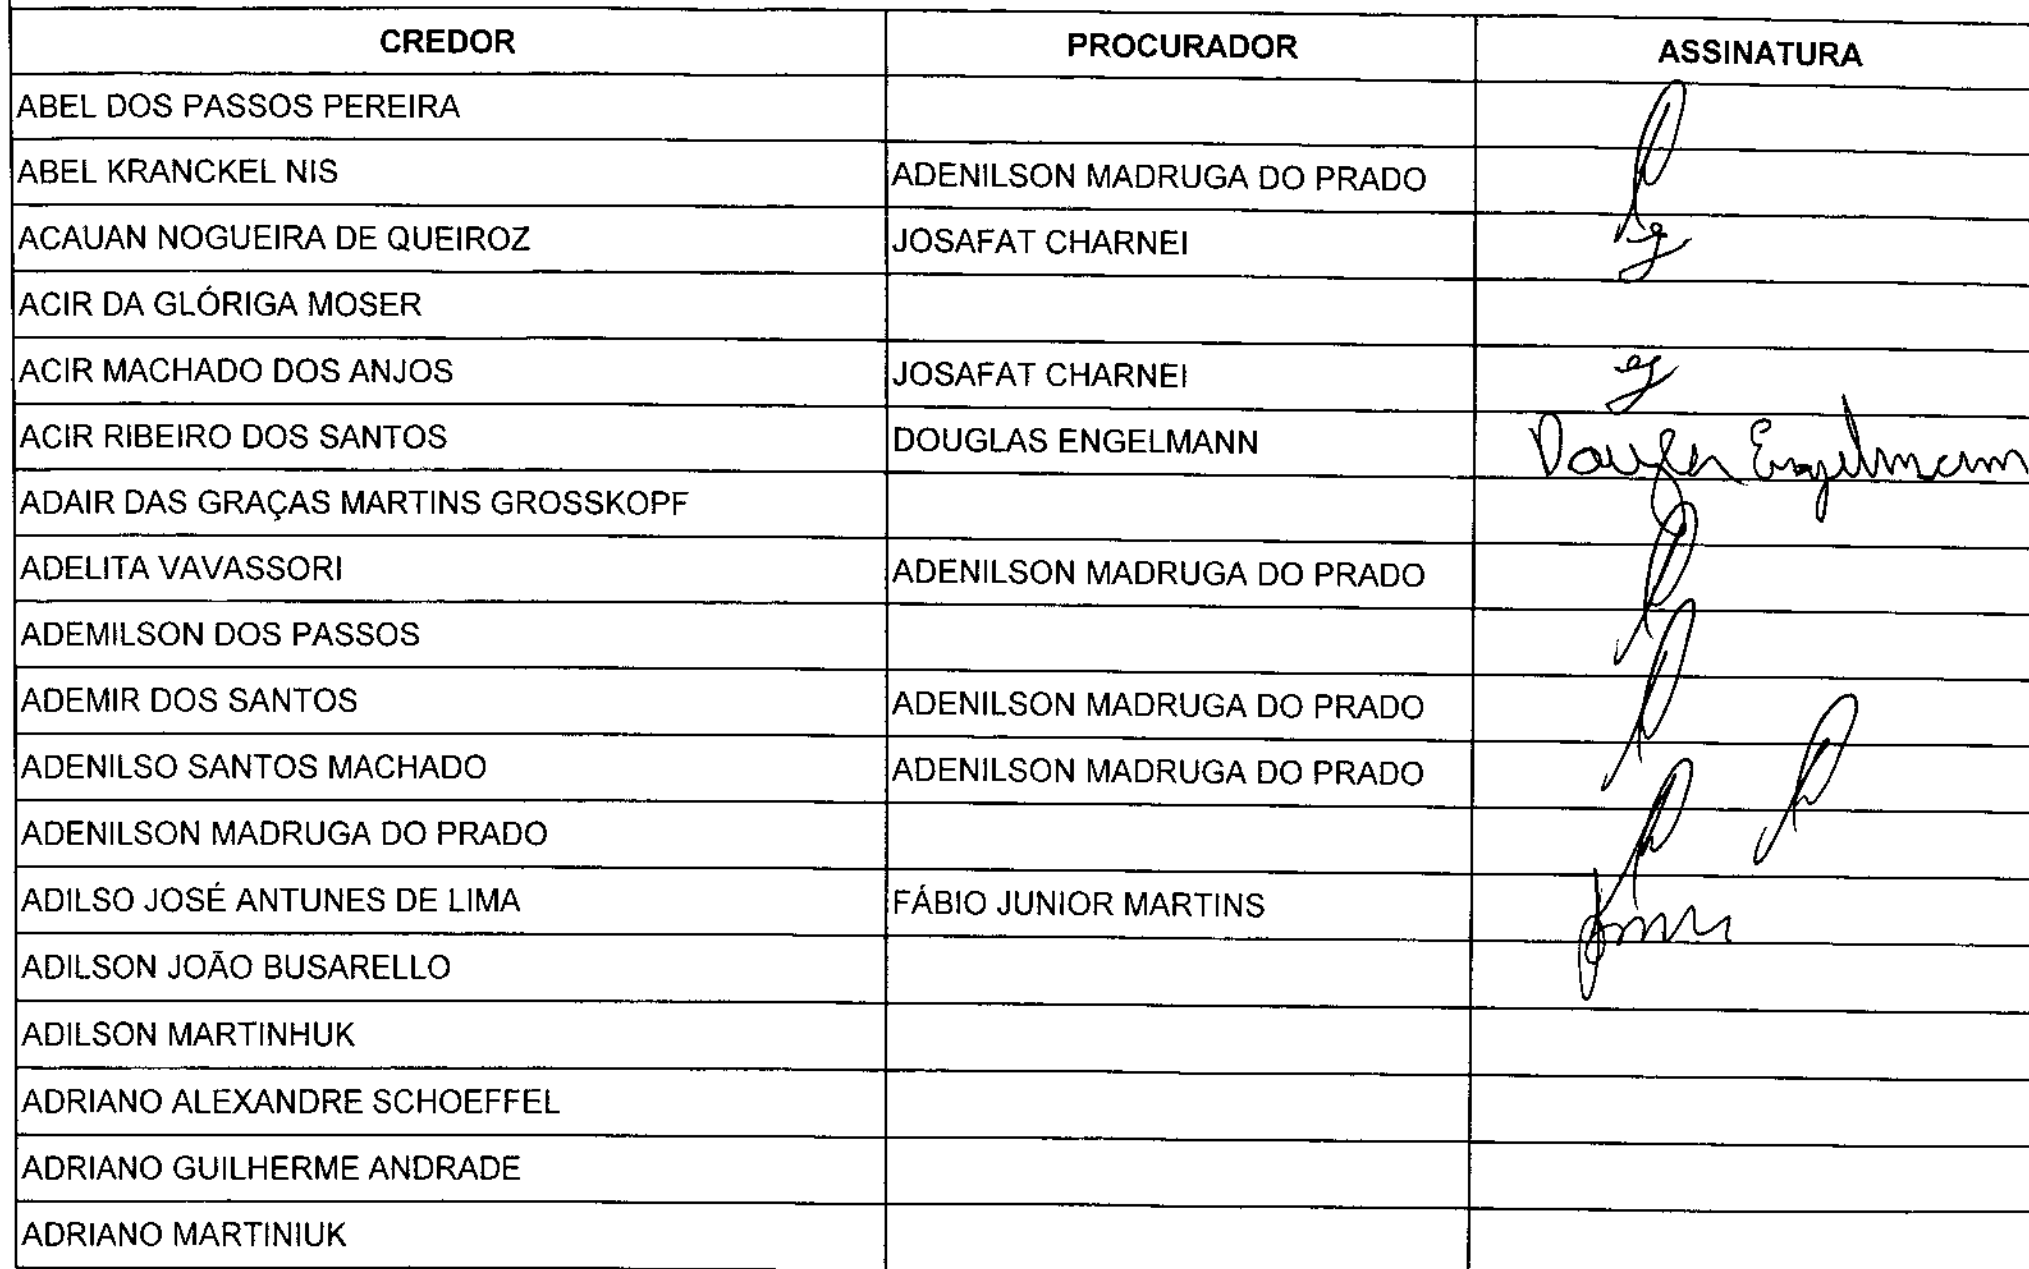 CREDOR PROCURADOR ASSINATURA
ABEL DOS PASSOS PEREIRA
ABEL KRANCKEL NIS ADENILSON MADRUGA DO PRADO
ACAUAN NOGUEIRA DE QUEIROZ JOSAFAT CHARNEI
ACIR DA GLÓRIGA MOSER
ACIR MACHADO DOS ANJOS JOSAFAT CHARNEI
ACIR RIBEIRO DOS SANTOS DOUGLAS ENGELMANN Douglas Engelmann
ADAIR DAS GRAÇAS MARTINS GROSSKOPF
ADELITA VAVASSORI ADENILSON MADRUGA DO PRADO
ADEMILSON DOS PASSOS
ADEMIR DOS SANTOS ADENILSON MADRUGA DO PRADO
ADENILSO SANTOS MACHADO ADENILSON MADRUGA DO PRADO
ADENILSON MADRUGA DO PRADO
ADILSO JOSÉ ANTUNES DE LIMA FÁBIO JUNIOR MARTINS
ADILSON JOÃO BUSARELLO
ADILSON MARTINHUK
ADRIANO ALEXANDRE SCHOEFFEL
ADRIANO GUILHERME ANDRADE
ADRIANO MARTINIUK